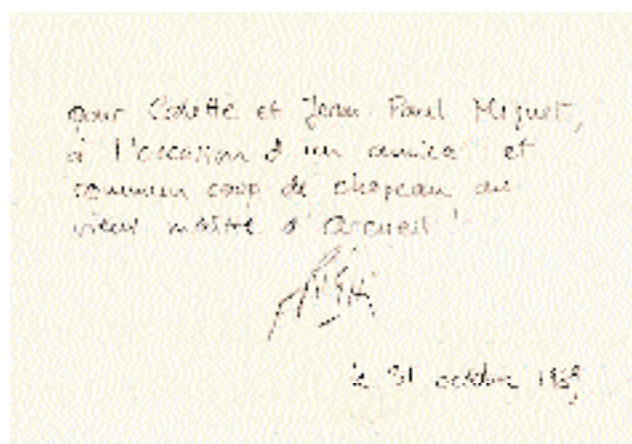 pour Colette et Jean Paul Miguet,
à l'occasion d'un amical et
commun coup de chapeau au
vieux maître d'Arcueil !
le 31 octobre